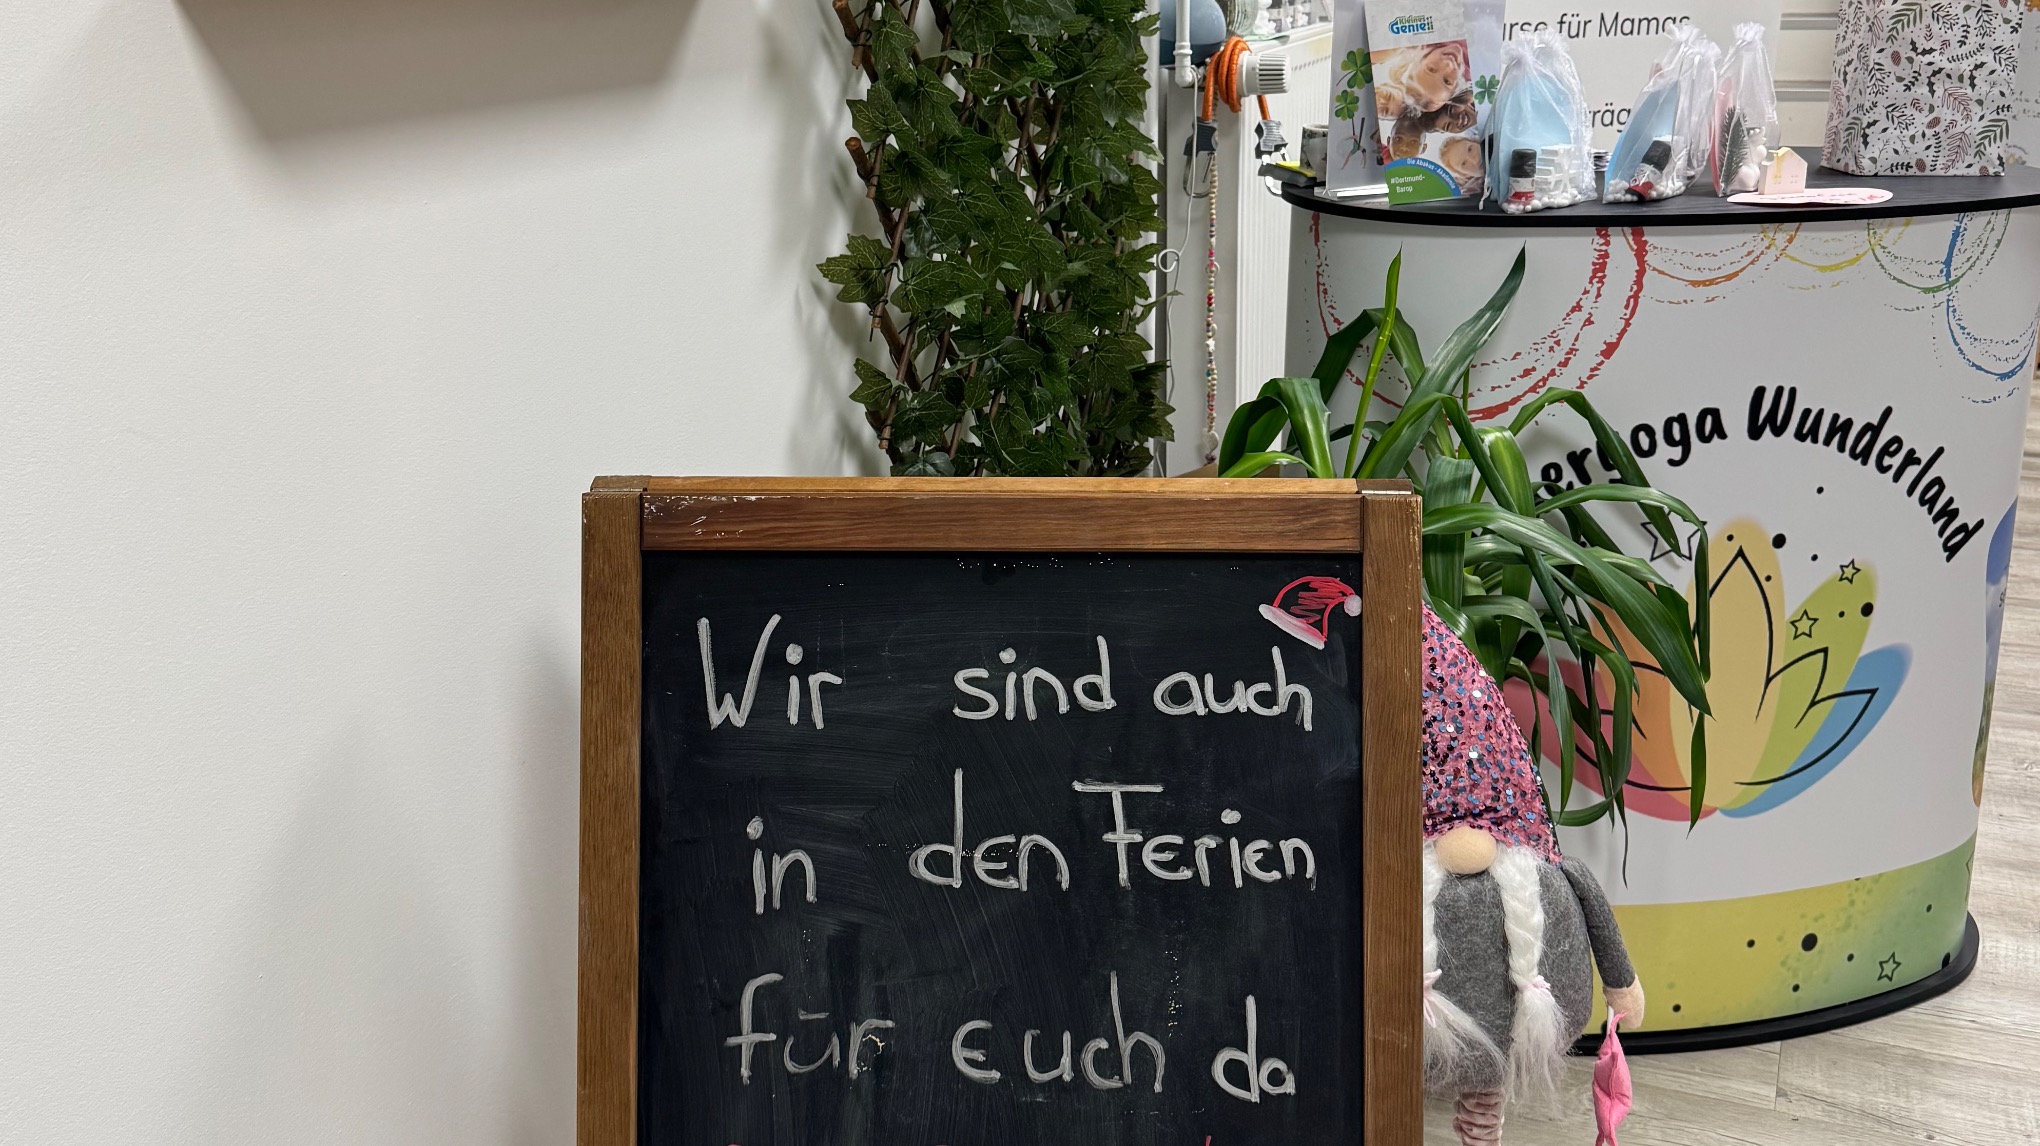 Kleines
Genie
Die Abakus-Akademie
#Dortmund-
Barop
urse für Mamas
räg
ergoga Wunderland
Wir sind auch
in den Ferien
für euch da